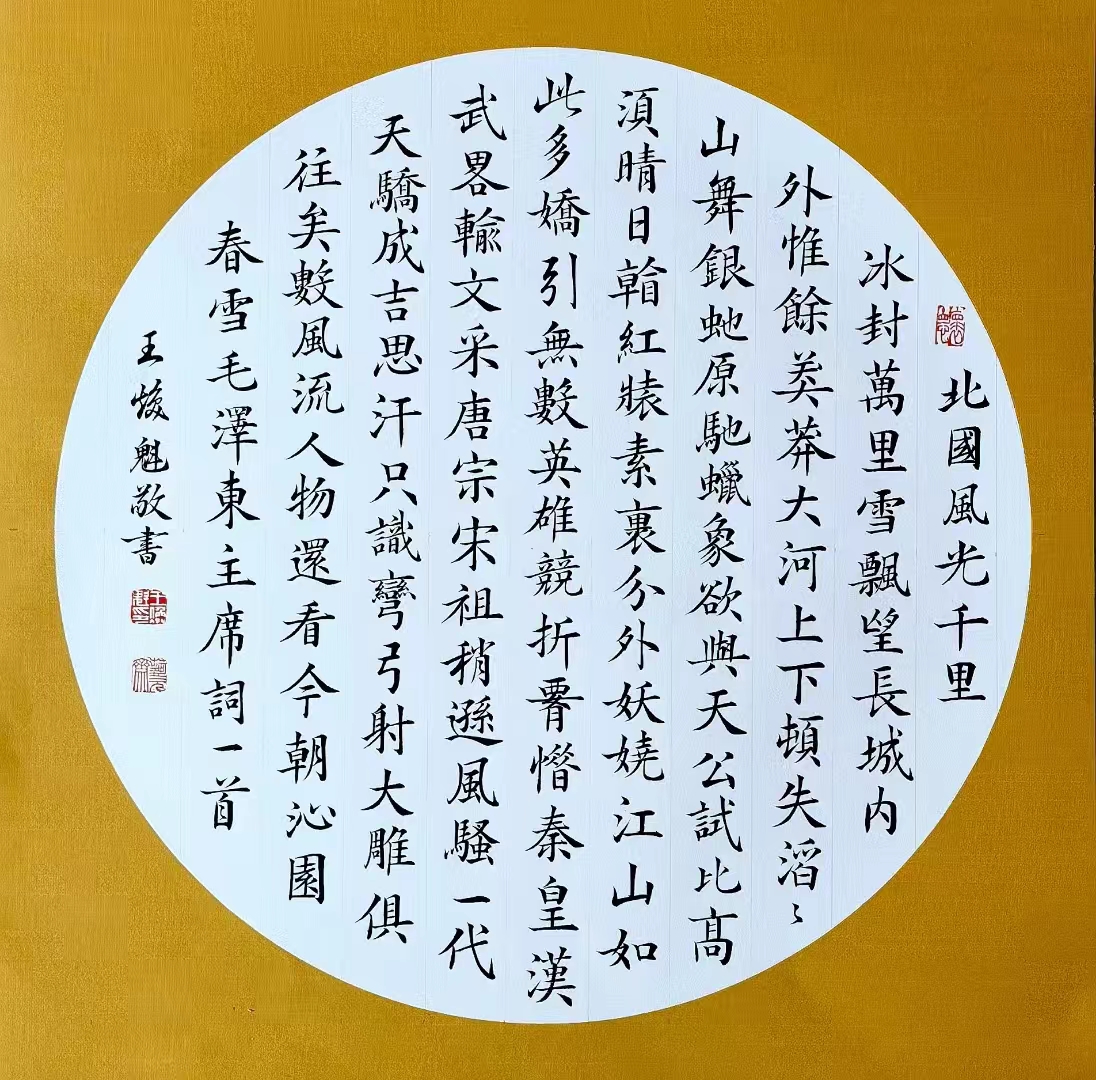 北國風光千里
冰封萬里雪飄望長城内
外惟餘莽莽大河上下頓失滔〻
山舞銀虵原馳蠟象欲與天公試比髙
湏晴日看紅裝素裹分外妖嬈江山如
此多嬌引無數英雄競折腰惜秦皇漢
武畧輸文采唐宗宋祖稍遜風騷一代
天驕成吉思汗只識彎弓射大雕俱
往矣數風流人物還看今朝沁園
春雪毛澤東主席詞一首
王焌魁敬書